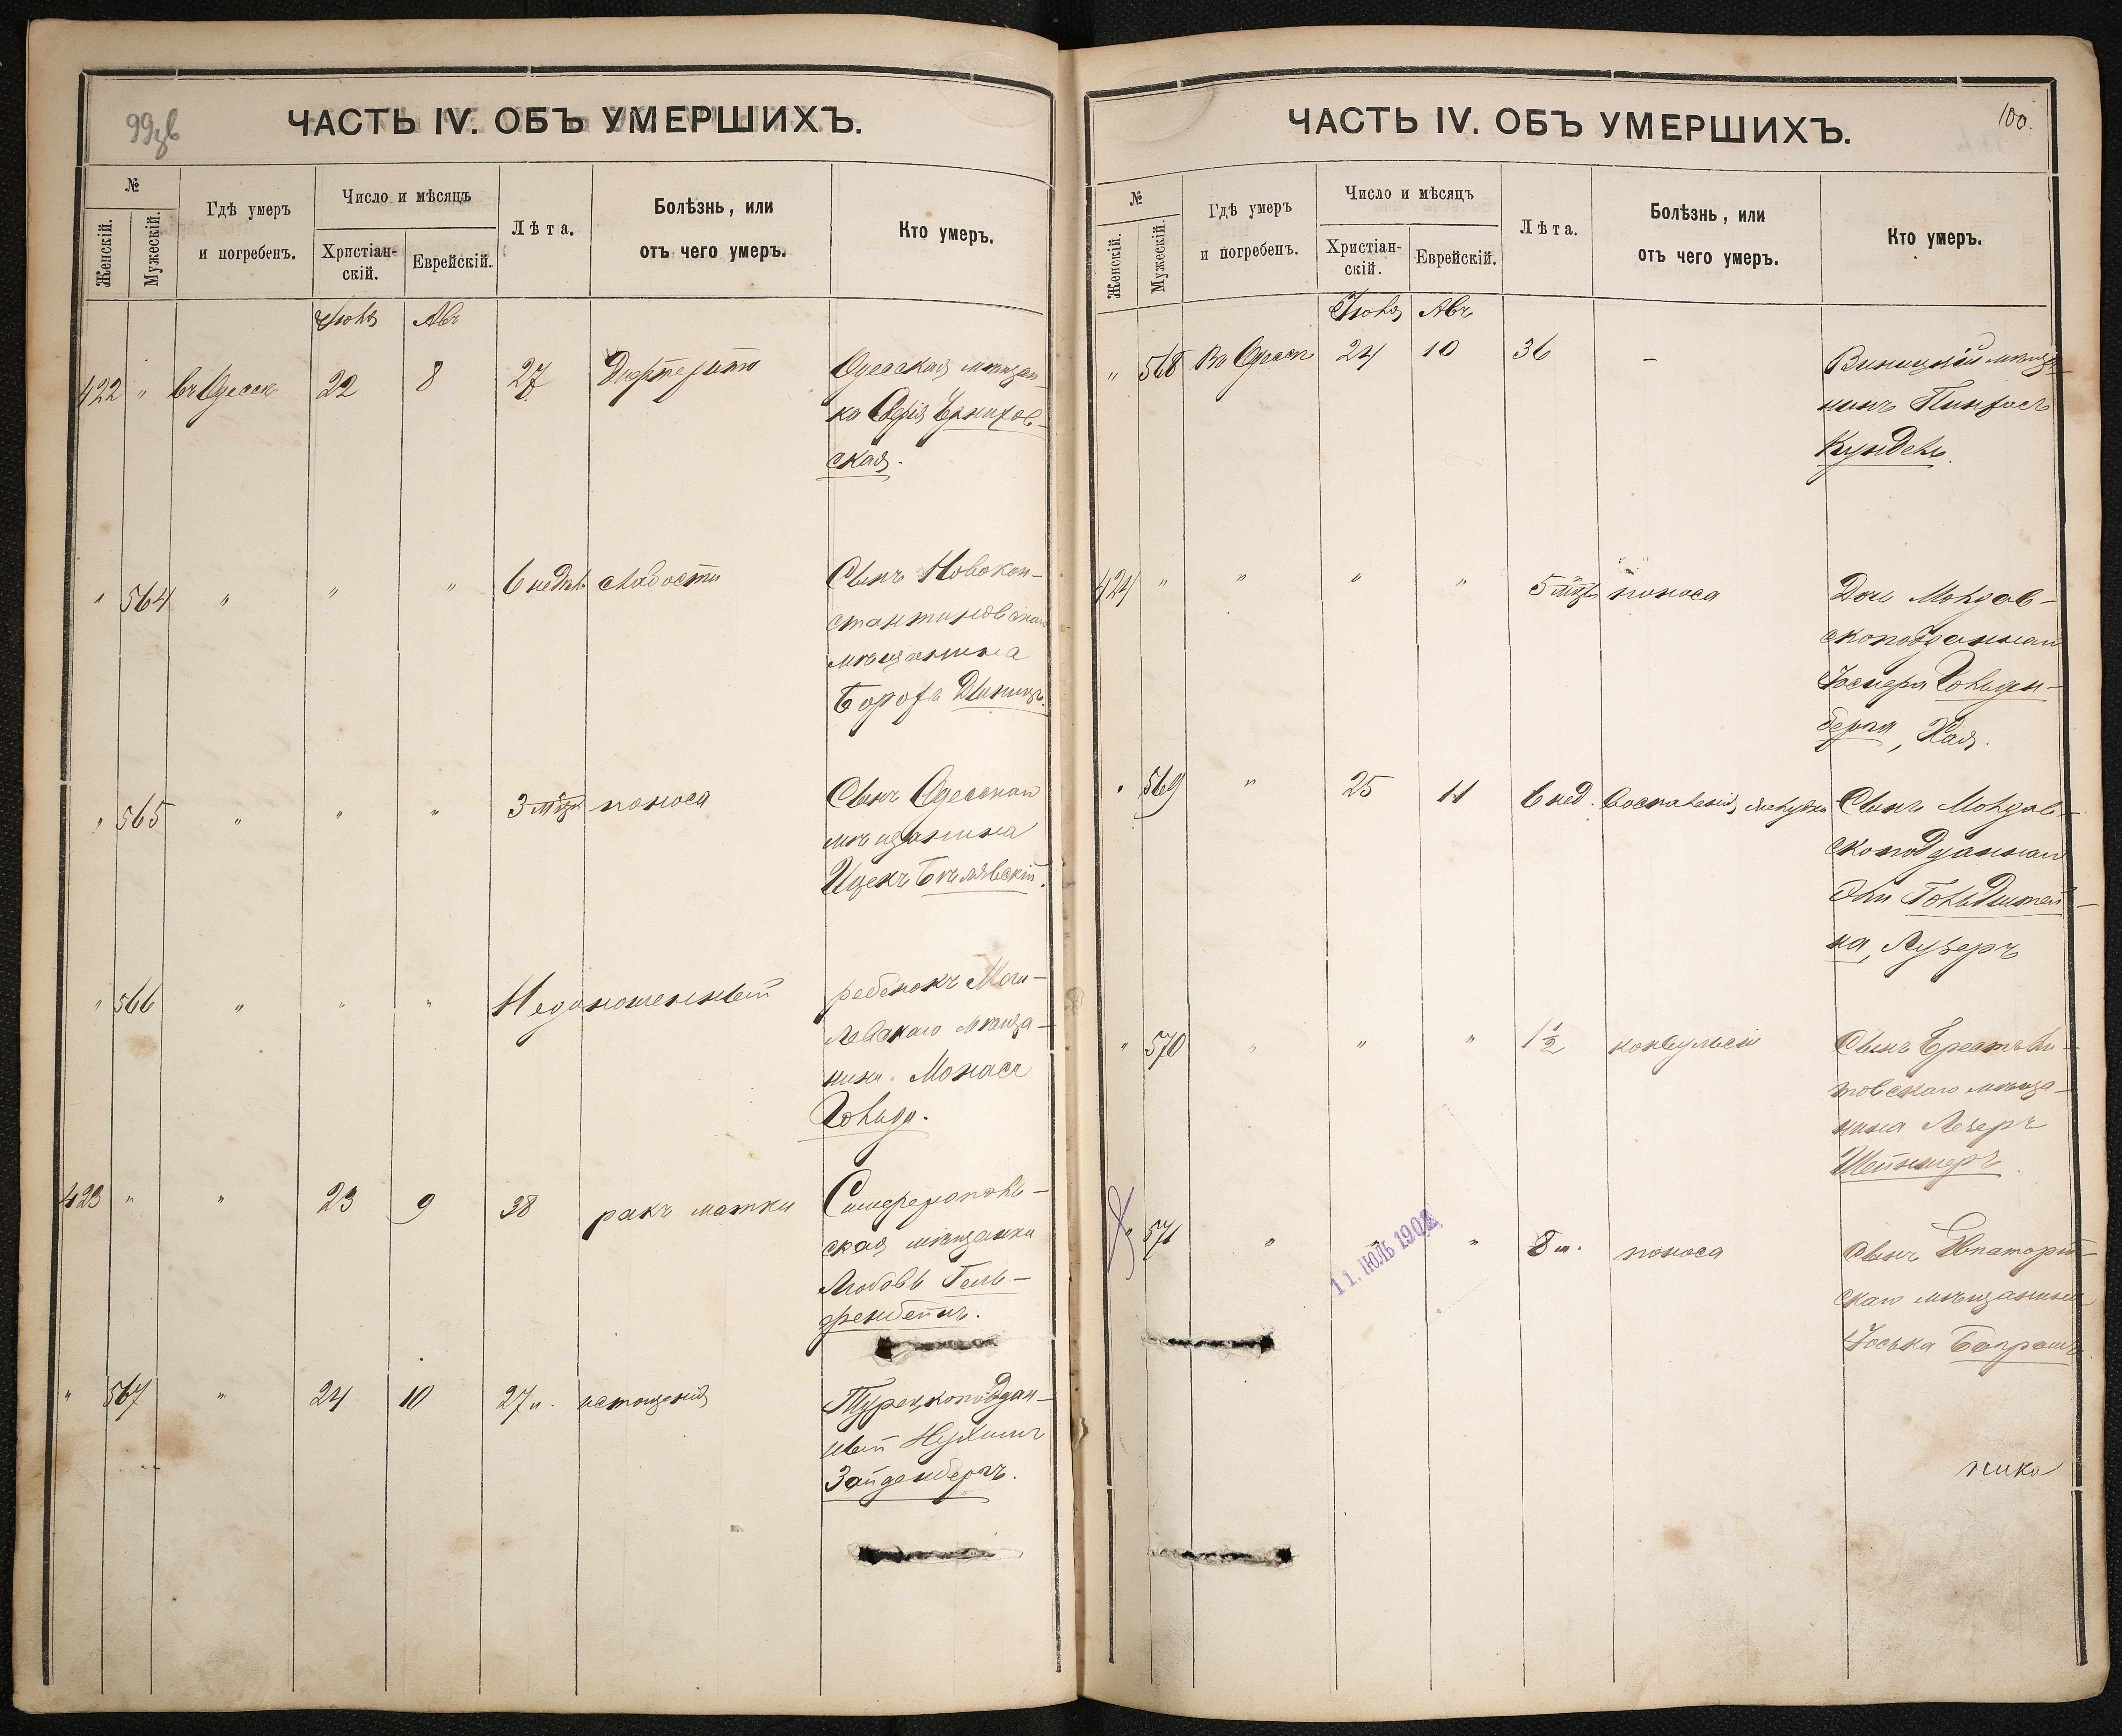 99
ЧАСТЬ IV. ОБЪ УМЕРШИХЪ.
№
Женскій.
Мужескій.
Гдѣ умеръ
и погребенъ.
Число и мѣсяцъ
Христіан-
скій.
Еврейскій.
Лѣта.
Болѣзнь, или
отъ чего умеръ.
Кто умеръ.
Іюля Авъ
422 " въ Одессѣ 22 8 27 Дифтерита Одесская мѣщан-
ка Софія Черняхов-
ская.
" 564 " " " 6 недѣль слабости Сынъ Новокон-
стантиновскаго
мѣщанина
Бороха
" 565 " " " 3 мѣс. поноса Сынъ Одесскаго
мѣщанина
Ицекъ Бѣлявскій.
" 566 " " " Недоношенный ребенокъ Моги-
левскаго мѣща-
нина Монаса
Гольда.
423 " " 23 9 38 ракъ матки Симферополь-
ская мѣщанка
Любовь Гель-
фенбейнъ.
" 567 " 24 10 27 л. истощенія Турецкоподдан-
ный Нухимъ
Зайденбергъ.
ЧАСТЬ IV. ОБЪ УМЕРШИХЪ.
100.
№
Женскій.
Мужескій.
Гдѣ умеръ
и погребенъ.
Число и мѣсяцъ
Христіан-
скій.
Еврейскій.
Лѣта.
Болѣзнь, или
отъ чего умеръ.
Кто умеръ.
Іюля Авъ
" 568 Въ Одессѣ 24 10 36 — Виницкій мѣща-
нинъ Пинхосъ
Кундель.
424 " " " " 5 мѣс. поноса Дочь Молдав-
скоподданнаго
Гольден-
берга, Хая.
" 569 " 25 11 6 нед. Воспаленія желудка Сынъ Молдав-
скоподданнаго
Эли Гольдштей-
на, Лузеръ
" 570 " " " 1½ конвульсій Сынъ Брестъ Ли-
товскаго мѣща-
нина Лейзеръ
" 571 " " 8 м. поноса Сынъ Евпаторій-
скаго мѣщанина
Іоська
11. ІЮЛЬ 1902
ника